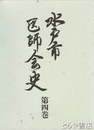 水戸市
医師会史
第四巻